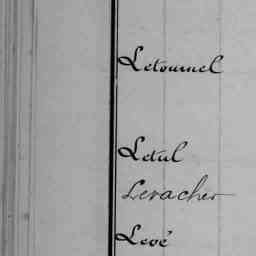 Letournel
Letul
Levacher
Levé